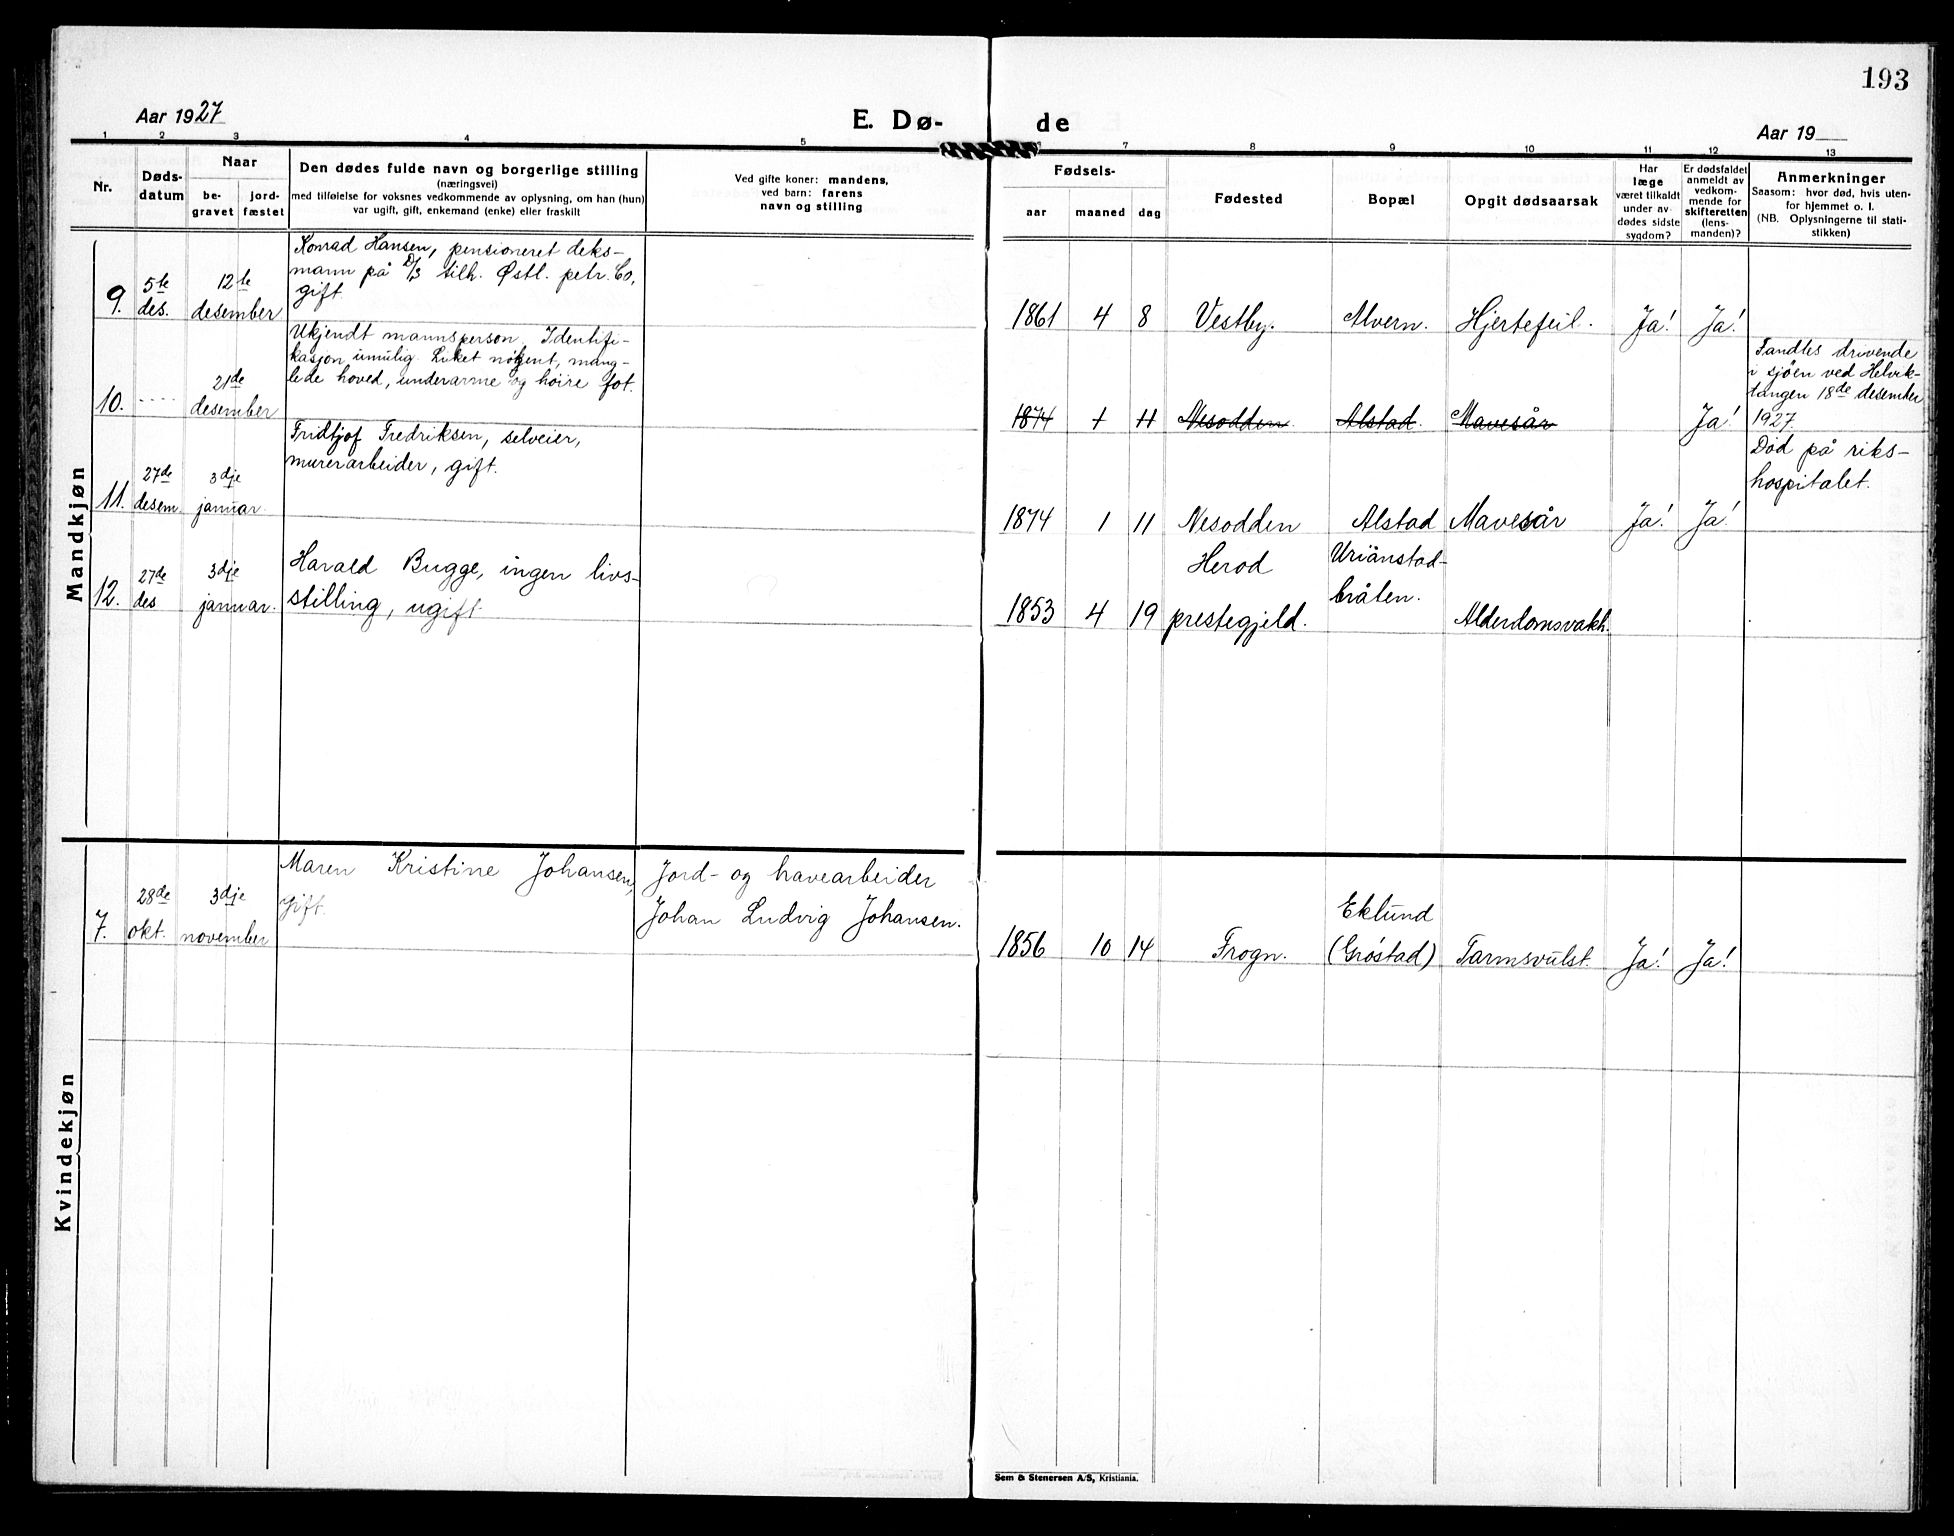 193
Aar 1927
E. Dø-
de
Aar 19
1 2 3 4 5 7 8 9 10 11 12 13
Nr.
Døds-
datum
Naar
be-
gravet
jord-
fæstet
Den dødes fulde navn og borgerlige stilling
(næringsvei)
med tilføielse for voksnes vedkommende av oplysning, om han (hun)
var ugift, gift, enkemand (enke) eller fraskilt
Ved gifte koner: mandens,
ved barn: farens
navn og stilling
Fødsels-
aar maaned dag
Fødested
Bopæl
Opgit dødsaarsak
Har
læge
været tilkaldt
under av-
dødes sidste
sygdom?
Er dødsfaldet
anmeldt av
vedkom-
mende for
skifteretten
(lens-
manden)?
Anmerkninger
Saasom: hvor død, hvis uten-
for hjemmet o. l.
(NB. Oplysningerne til stati-
stikken)
Mandkjøn
9.
5te
des.
12te
desember
Konrad Hansen, pensioneret deks-
mann på D/S tilh. Østl. petr. Co,
gift
1861 4 8 Vestby. Alvern. Hjertefeil. Ja! Ja!
10.
- - - -
21de
desember
Ukjendt mannsperson. Identifi-
kasjon umulig. Liket nøgent, mang-
lede hoved, underarme og høire fot.
1874 1 11 Nesodden Alstad. Mavesår Ja!
Fandtes drivende
i sjøen ved Helvik-
tangen 18de desember
1927.
11.
27de
desem.
3dje
januar.
Fridtjof Fredriksen, selveier,
murerarbeider, gift.
1874 1 11 Nesodden Alstad Mavesår Ja! Ja!
Død på riks-
hospitalet.
12.
27de
des
3dje
januar.
Harald Bugge, ingen livs-
stilling, ugift
1853 4 19
Herod
prestegjeld.
Uriänstad-
bråten.
Alderdomsvakh.
Kvindekjøn
7.
28de
okt.
3dje
november
Maren Kristine Johansen,
gift.
Jord- og havearbeider
Johan Ludvig Johansen.
1856 10 14 Frogn.
Eklund
(Grøstad)
Tarmsvulst. Ja! Ja!
Sem & Stenersen A/S, Kristiania.